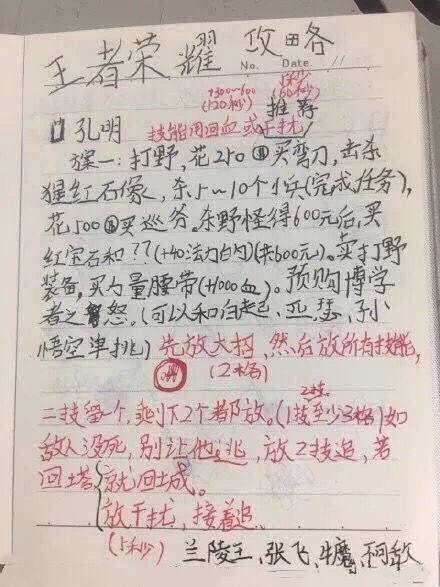 王者荣耀 攻略
No. Date. 11
+300~600 5秒
(120秒) (60秒)
推荐
孔明 技能用回血或干扰
方案一:打野,花250买弯刀,击杀
猩红石像,杀5~10个小兵(完成任务),
花500买巡务。杀野怪得600元后,买
红宝石和??(+40法力白闪)(来600元)。卖打野
装备,买力量腰带(+1000血)。预购博学
者之怒。(可以和白起、亚瑟、孙
悟空单挑)先放大招,然后放所有技能,
(2格)
二技留一个,剩下2个都放。(1技至少3格)如
2技
敌人没死,别让他逃,放2技追,若
回塔 就回城。
放干扰,接着追
(5秒) 兰陵王、张飞、牛魔,不可敌